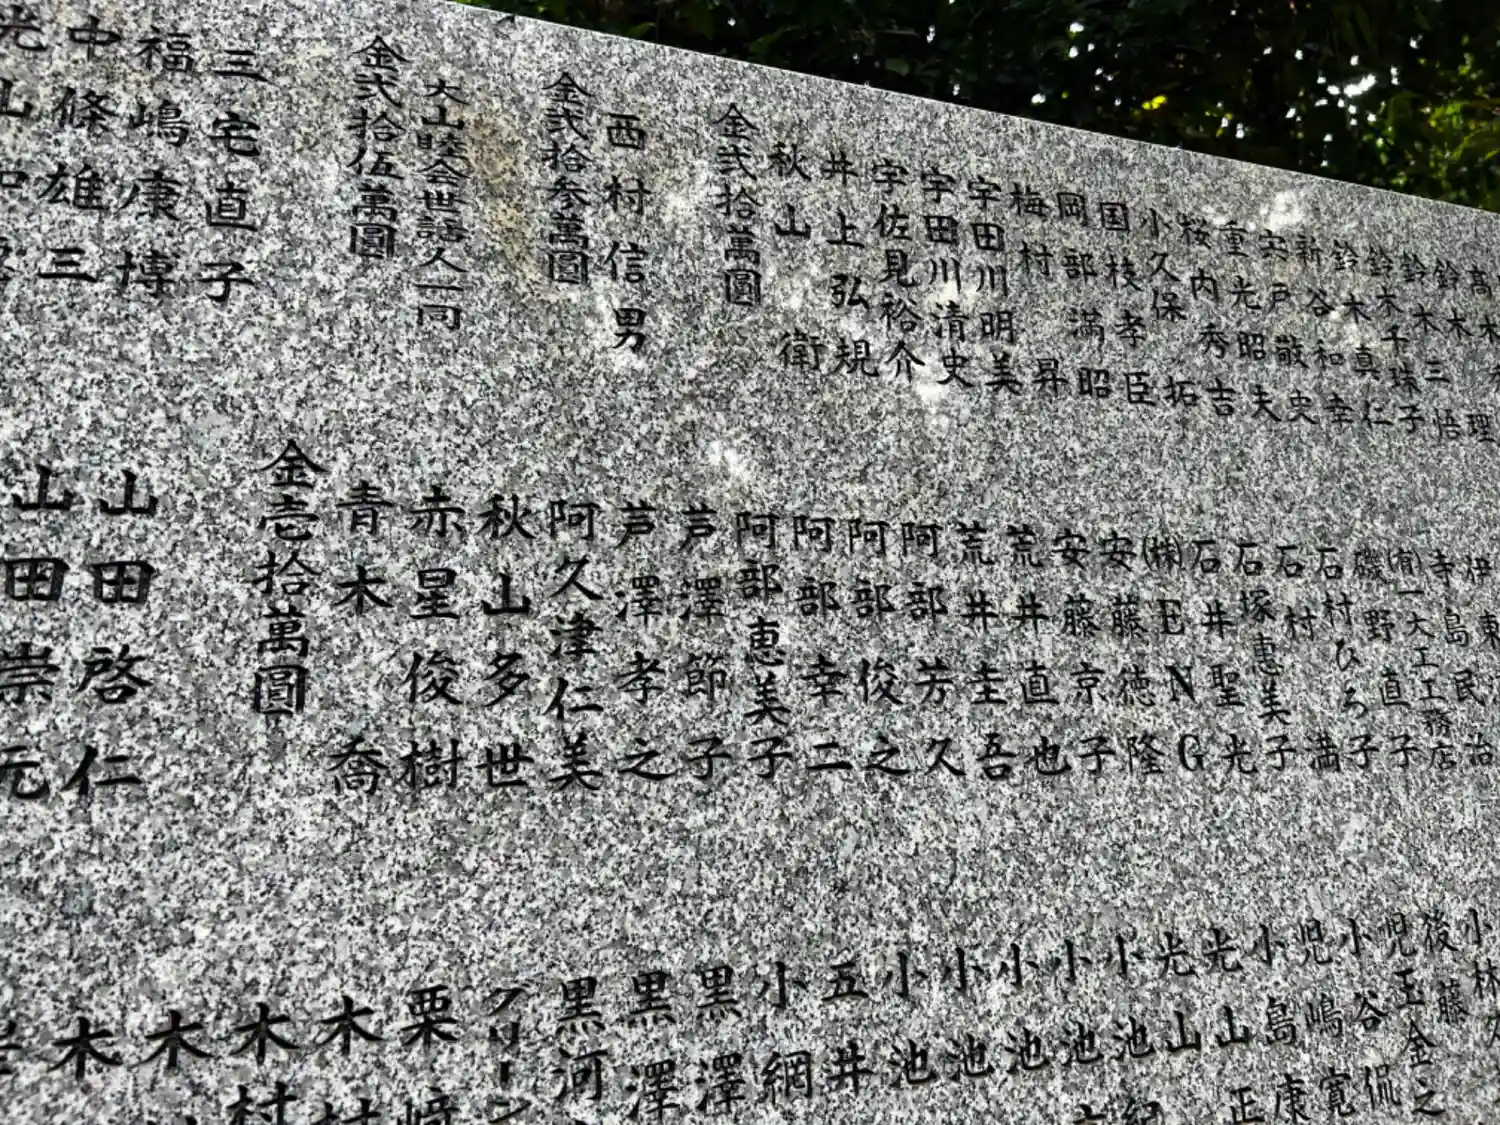 鈴木三悟
鈴木千珠子
鈴木真仁
新谷和幸
宍戸敬史
重光昭夫
桜内秀吉
小久保拓
国枝孝臣
岡部満昭
梅村昇
宇田川明美
宇田川清史
宇佐見裕介
井上弘規
秋山衛
金弐拾萬圓
西村信男
金弐拾参萬圓
大山睦会世話人一同
金弐拾伍萬圓
三宅直子
福嶋康博
中條雄三
寺島民治
㈲一大工工務店
磯野直子
石村ひろ子
石村満
石塚恵美子
石井聖光
㈱ENG
安藤徳隆
安藤京子
荒井直也
荒井圭吾
阿部芳久
阿部俊之
阿部幸二
阿部恵美子
芦澤節子
芦澤孝之
阿久津仁美
秋山多世
赤星俊樹
青木喬
金壱拾萬圓
山田啓仁
山田崇元
小林
後藤
児玉金之
小谷侃
児嶋寛
小島康
光山正
光山
小池
小池
小池
小池
小池
五井
小網
黒澤
黒澤
黒河
グリーン
栗崎
木村
木村
木
木